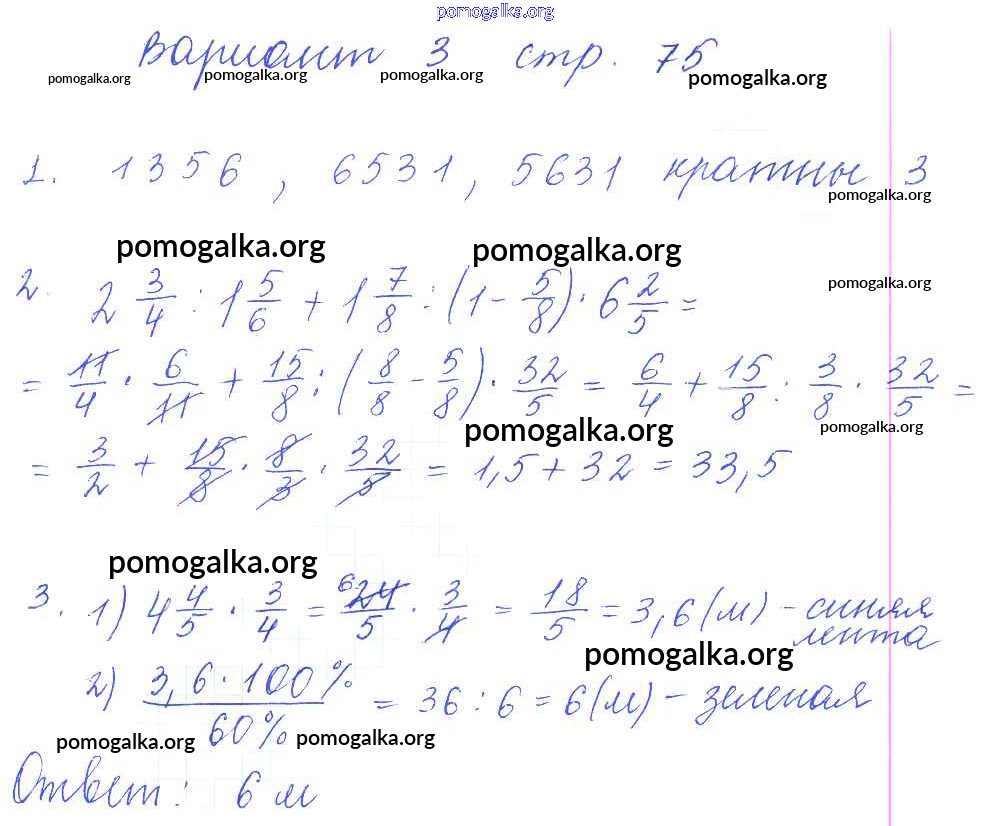 pomogalka.org
Вариант 3 стр. 75
pomogalka.org pomogalka.org pomogalka.org pomogalka.org
1. 1356, 6531, 5631 кратны 3
pomogalka.org
pomogalka.org pomogalka.org
2. 2 3/4 : 1 5/6 + 1 7/8 : (1 - 5/8) · 6 2/5 =
pomogalka.org
= 11/4 · 6/11 + 15/8 : (8/8 - 5/8) · 32/5 = 6/4 + 15/8 : 3/8 · 32/5 =
pomogalka.org pomogalka.org
= 3/2 + 15/8 · 8/3 · 32/5 = 1,5 + 32 = 33,5
pomogalka.org
3. 1) 4 4/5 · 3/4 = 6 24/5 · 3/4 = 18/5 = 3,6 (м) - синяя
лента
pomogalka.org
2) 3,6 · 100% / 60% = 36 : 6 = 6 (м) - зеленая
pomogalka.org pomogalka.org
Ответ: 6 м